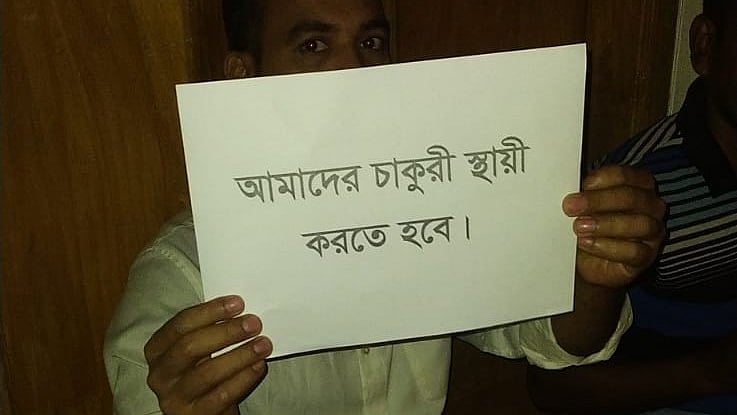 আমাদের চাকুরী স্থায়ী
করতে হবে।